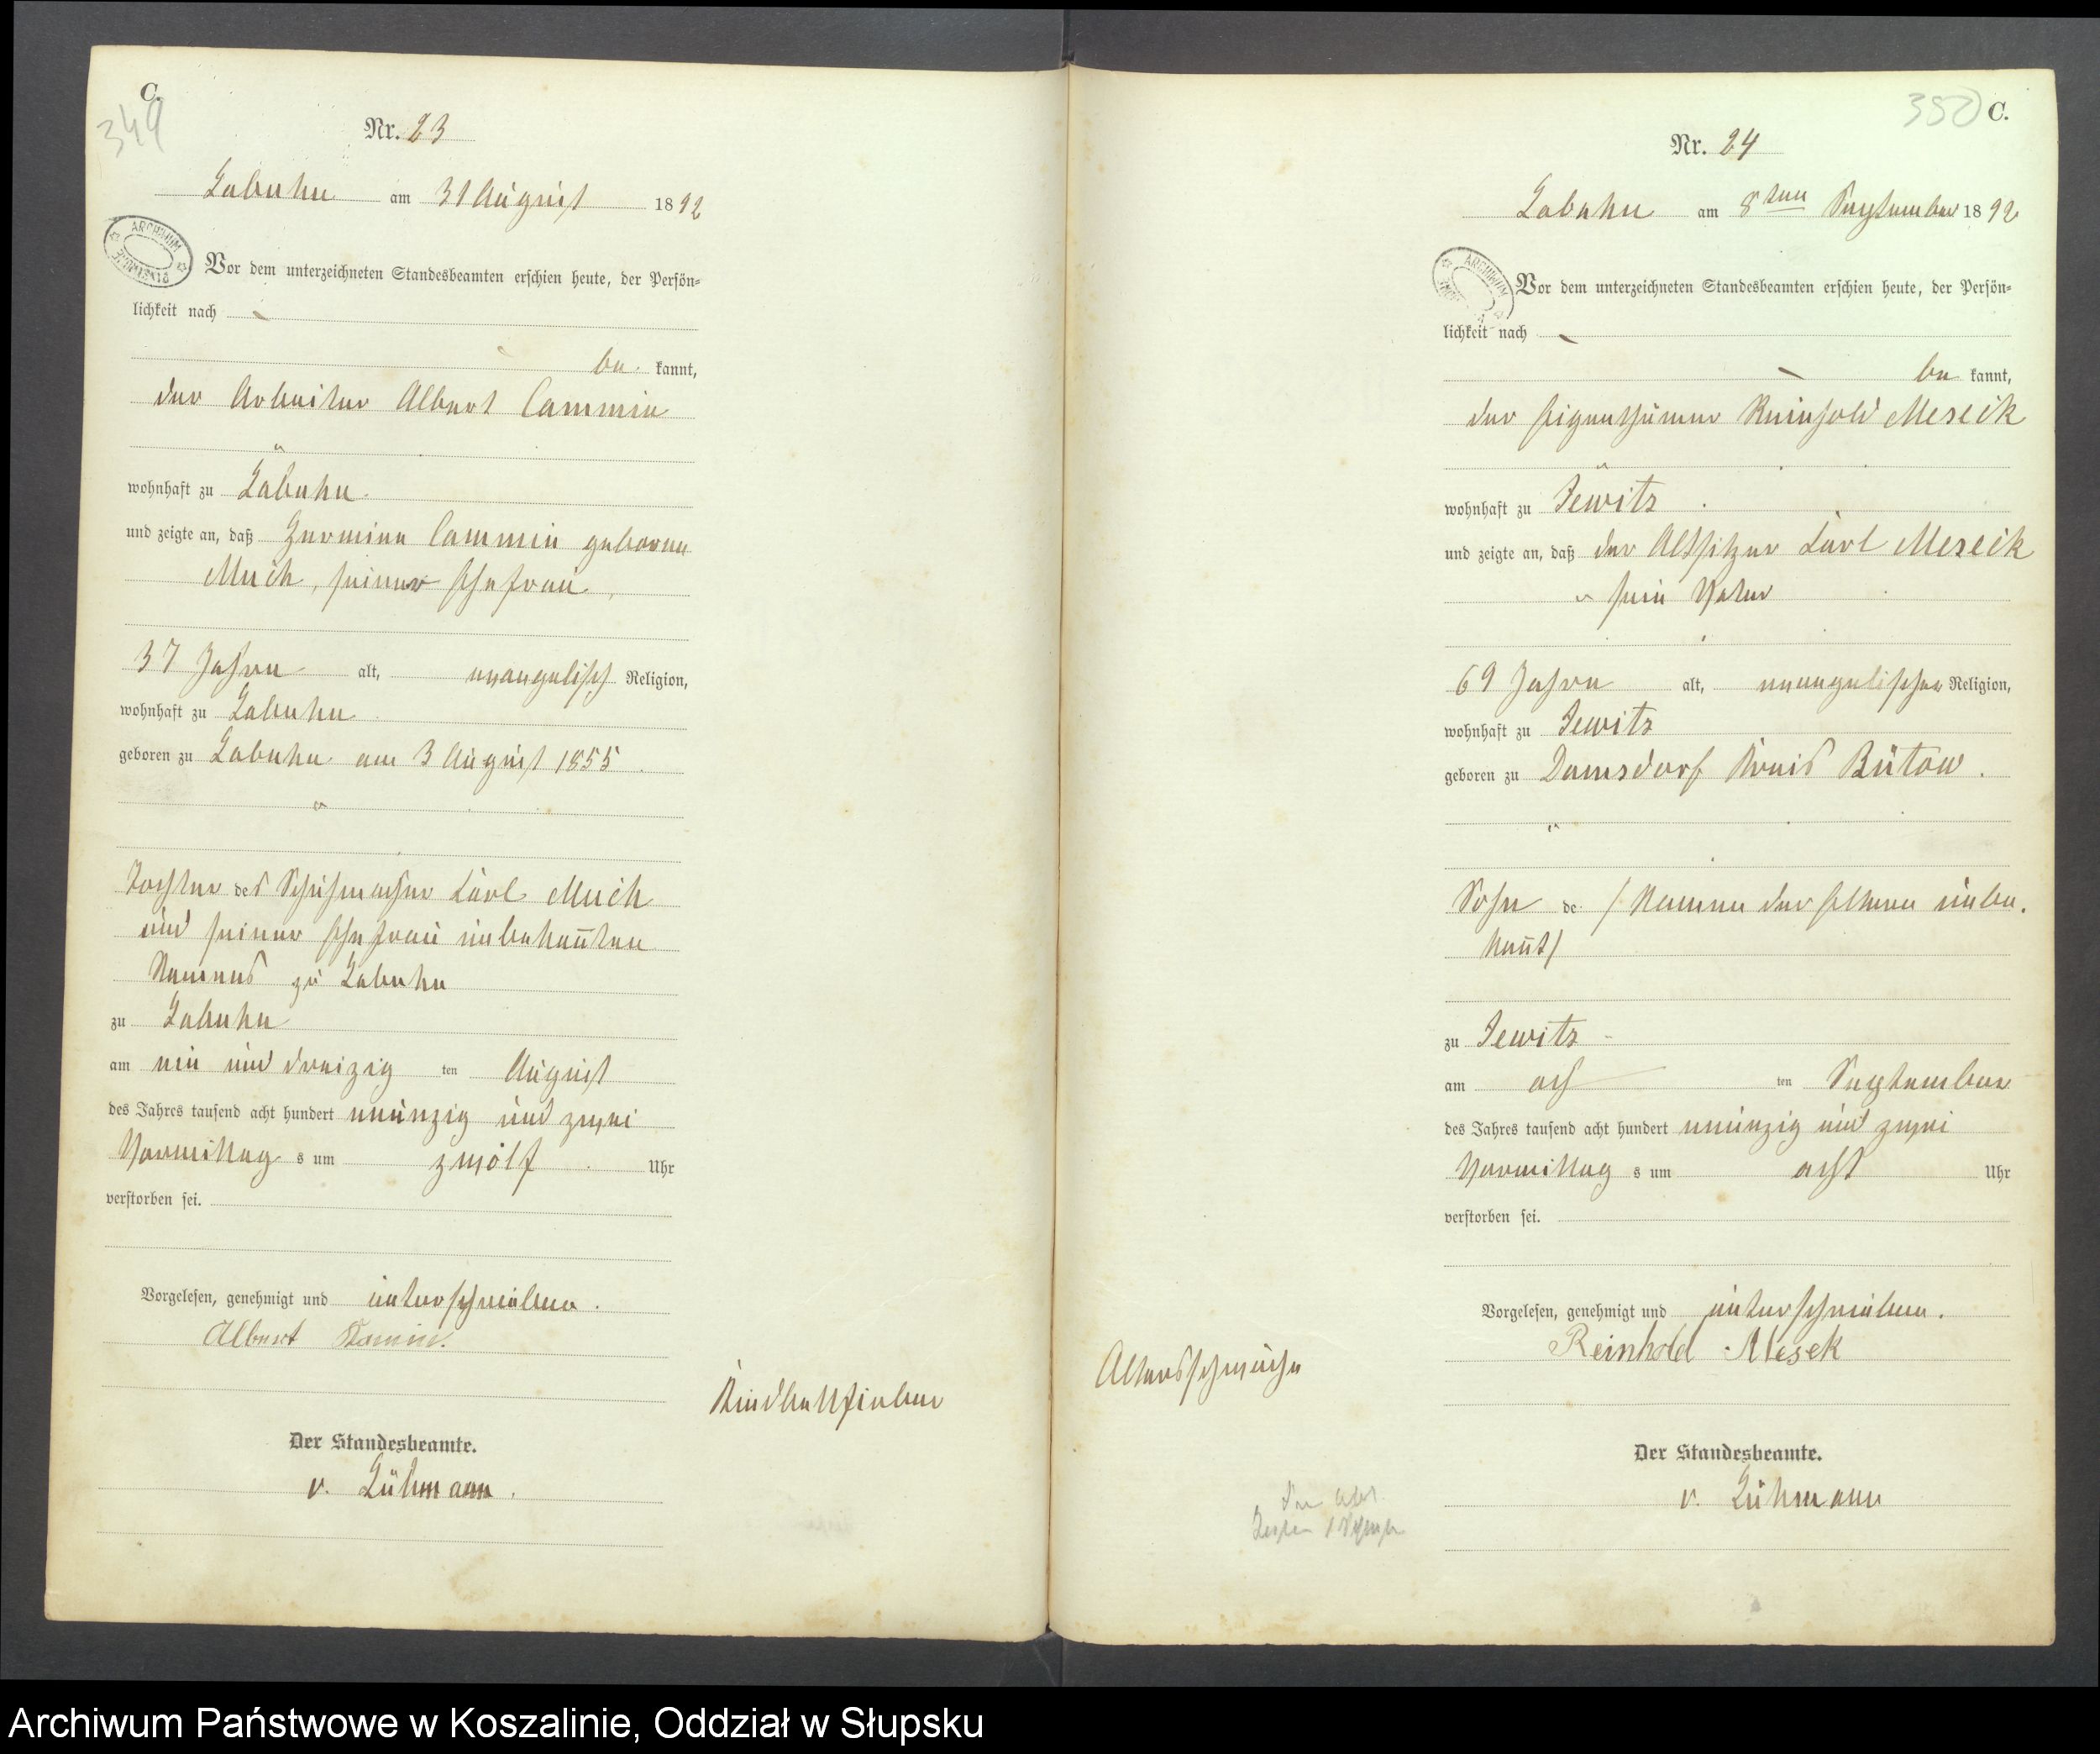 C.
349
Nr. 23
Labuhn am 31 August 1892
ARCHIWUM
Vor dem unterzeichneten Standesbeamten erschien heute, der Persön-
lichkeit nach
be kannt,
der Arbeiter Albert Cammin
wohnhaft zu Labuhn
und zeigte an, daß Hermine Cammin geborene
Much, seiner Ehefrau,
37 Jahre alt, evangelisch Religion,
wohnhaft zu Labuhn
geboren zu Labuhn am 3 August 1855
Tochter des Schuhmacher Carl Much
und seiner Ehefrau unbekannten
Namens zu Labuhn
zu Labuhn
am ein und dreizig ten August
des Jahres tausend acht hundert neunzig und zwei
Vormittag s um zwölf Uhr
verstorben sei.
Vorgelesen, genehmigt und unterschrieben.
Albert Kamin.
Kindbettfieber
Der Standesbeamte.
v. Lühmann.
350 C.
Nr. 24
Labuhn am 8ten September 1892
ARCHIWUM
Vor dem unterzeichneten Standesbeamten erschien heute, der Persön-
lichkeit nach
be kannt,
der Eigenthümer Reinhold Meseck
wohnhaft zu Jewitz
und zeigte an, daß der Altsitzer Carl Meseck
sein Vater
69 Jahre alt, evangelischer Religion,
wohnhaft zu Jewitz
geboren zu Damsdorf Kreis Bütow.
Sohn de / Namen der Eltern unbe.
kannt /
zu Jewitz
am ach ten September
des Jahres tausend acht hundert neunzig und zwei
Vormittag s um acht Uhr
verstorben sei.
Vorgelesen, genehmigt und unterschrieben.
Reinhold Mesek
Altersschwäche
Der Standesbeamte.
v. Lühmann
Archiwum Państwowe w Koszalinie, Oddział w Słupsku